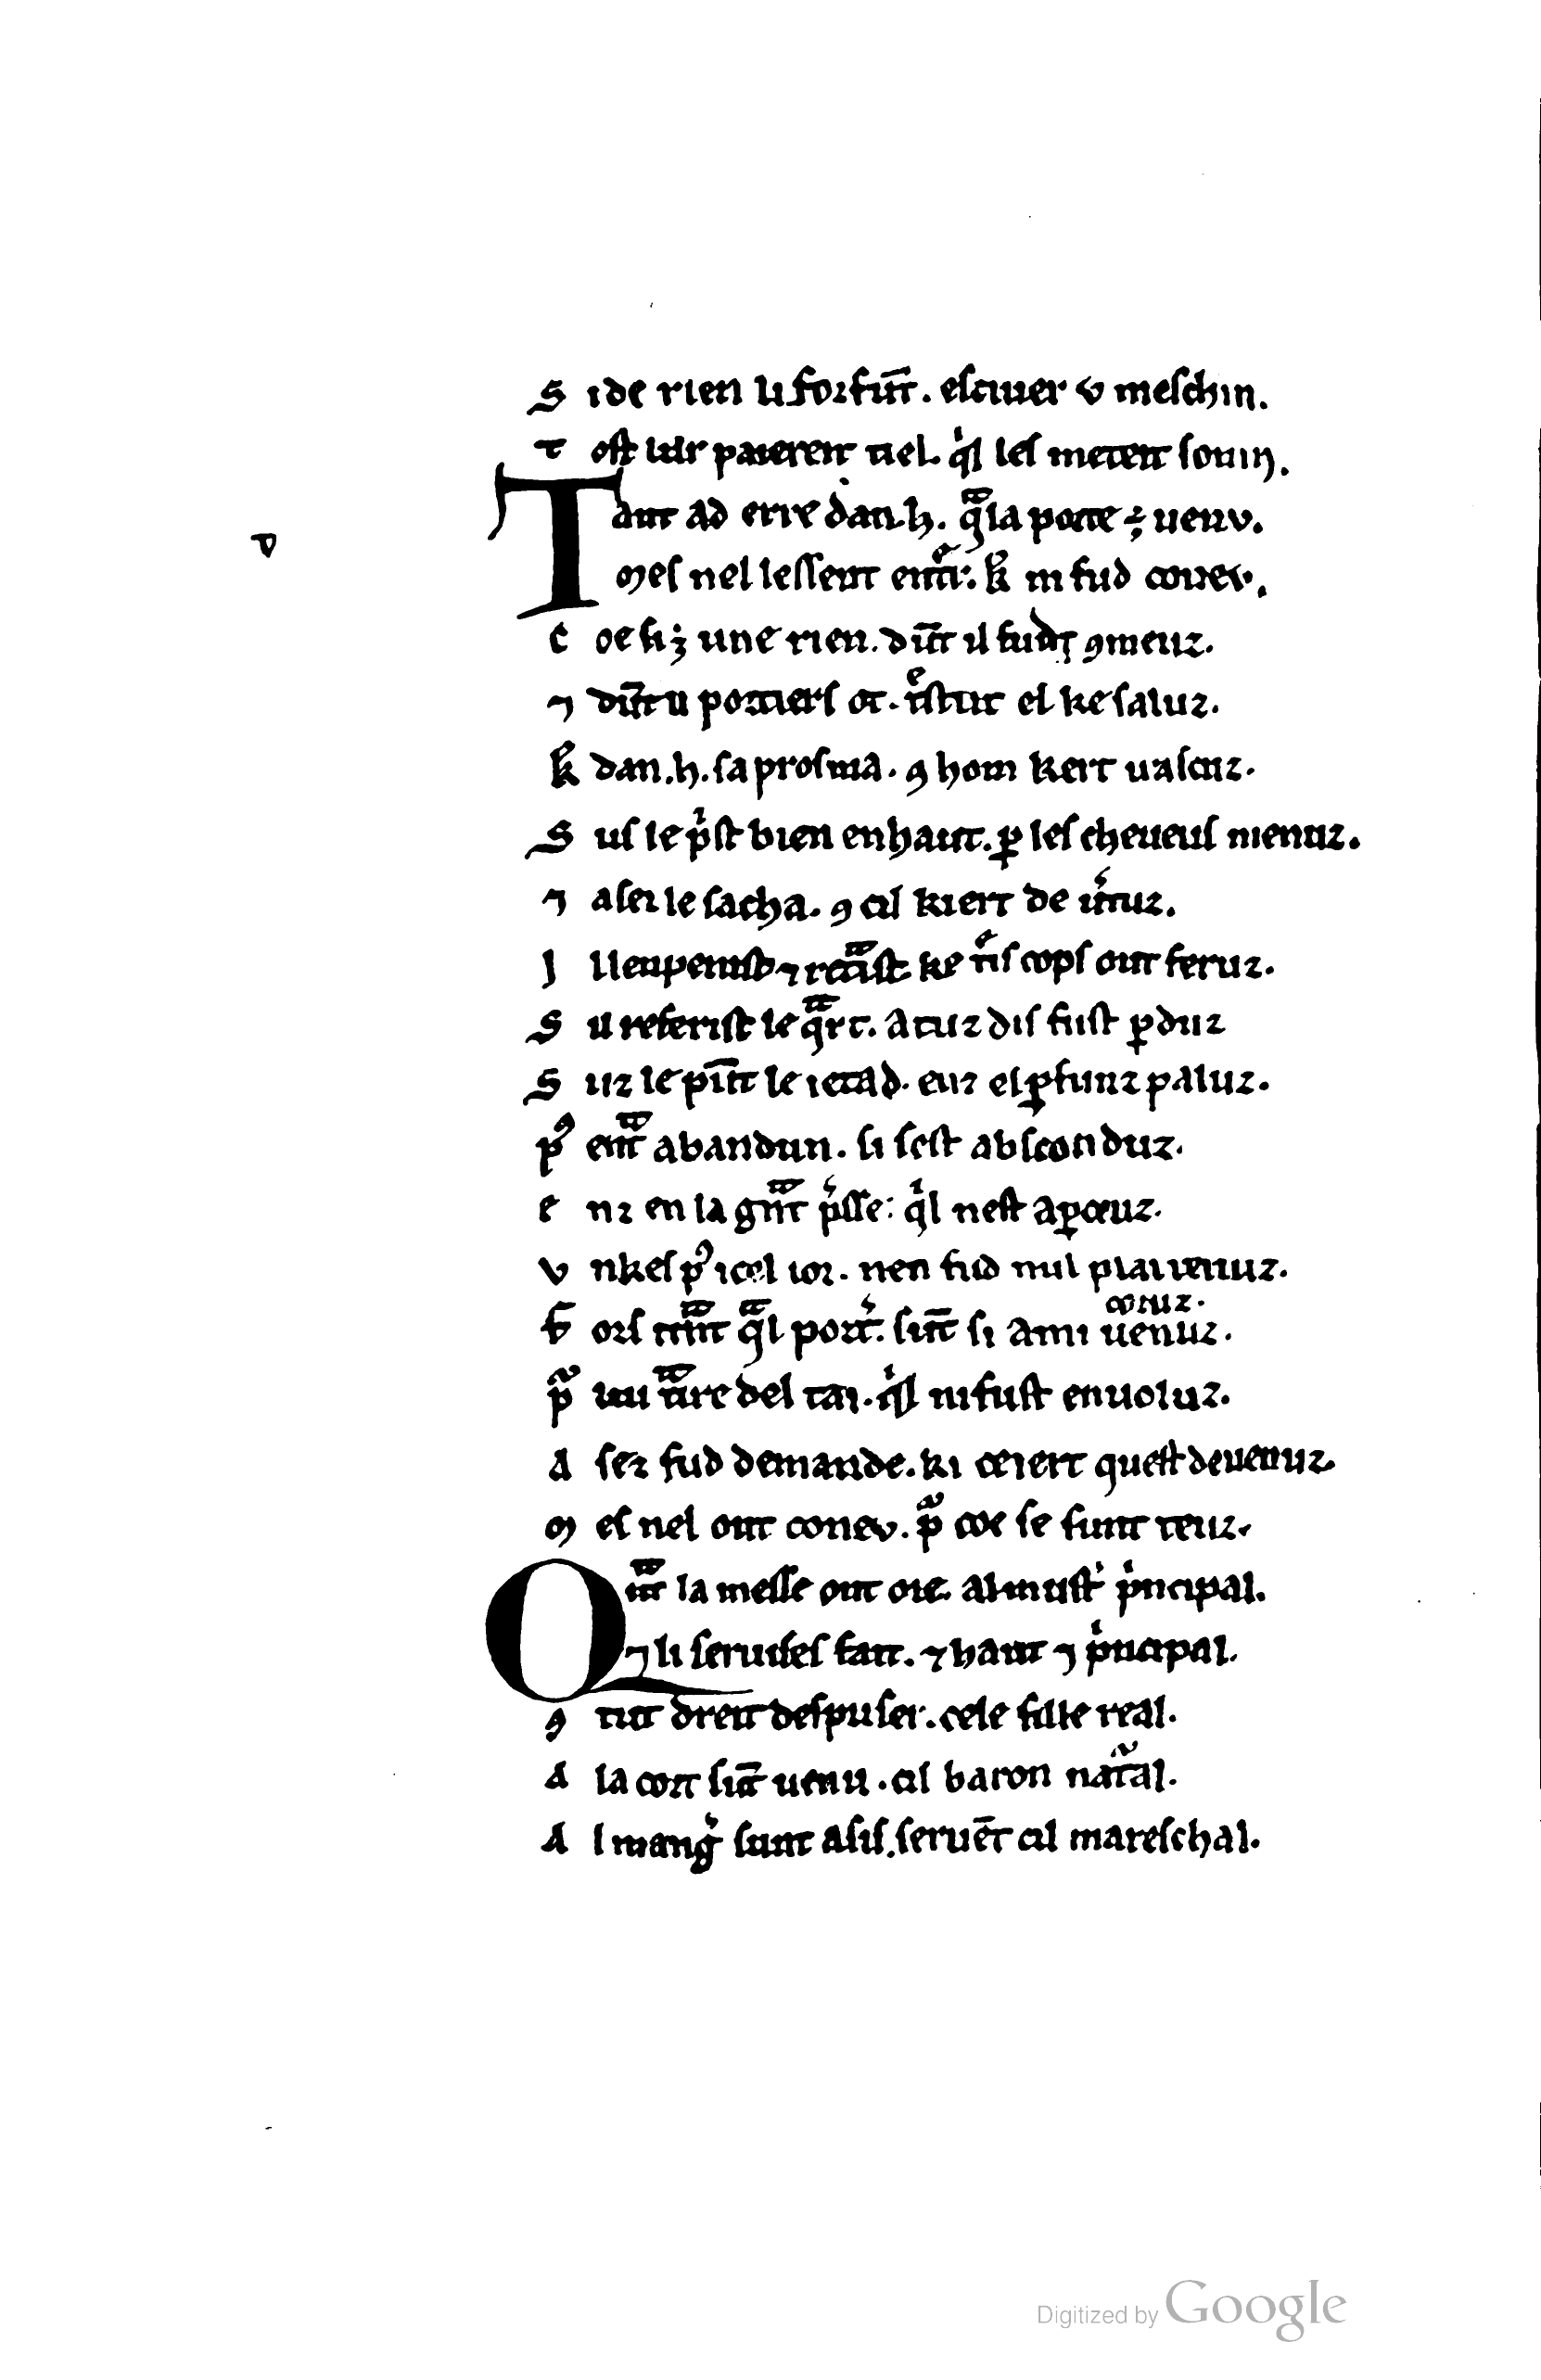 S i de rien li forfūt. escuier v meschin.
t ost lur paierent tiel. qͥl les metent souin.
Tant ad erre dan.h. qᷓ la porte ⁊; uenv.
v
Mes nel lessent entͤr: k̄ ni fud conev.
C oe fiꝫ une rien. dūt il fud ꝯmeuz.
⁊ dūt li portiers ot. tͤstut el ke saluz.
k̄ dan.h. sa prosma. ꝯ hom kert uascuz.
S us le pͥst bien en haut. ꝑ les cheueus menuz.
⁊ a sei le sacha. ꝯ cil kiert de ūtuz.
I l len peinst ⁊ retᷓist ke tͤis cops out feruz.
S il referist le qᷓrt. a tuz dis fust ꝑduz
S uz le pūt le ietad. enz el ꝑfunz paluz.
pꝰ entᷓ abandun. si sest absconduz.
e nz en la gᷓnt pͤsse: qͥl nest aꝑceuz.
v nkes pꝰ icel ior. nen fud nul plait tenuz.
coruz.
F ors tᷓnt qᷓl portͤ. sūt si ami uenuz.
pᷓ uu tᷓire del tai. qͥl ni fust enuoluz.
A sez fud demande. ki ceiert quest deuenuz.
M es nel ont conev. pᷓ coe se sunt teuz.
Qᷓnt la messe ont oie. al must' pͥncipal.
⁊ li seruises fait. ⁊ haut ⁊ pͥncipal.
ꝯ tut dreit despuser. cele fille real.
A la cort sūt uenu. cil baron natᷓal.
A l mangͤ sunt asis. seruēt cil mareschal.
Digitized by Google